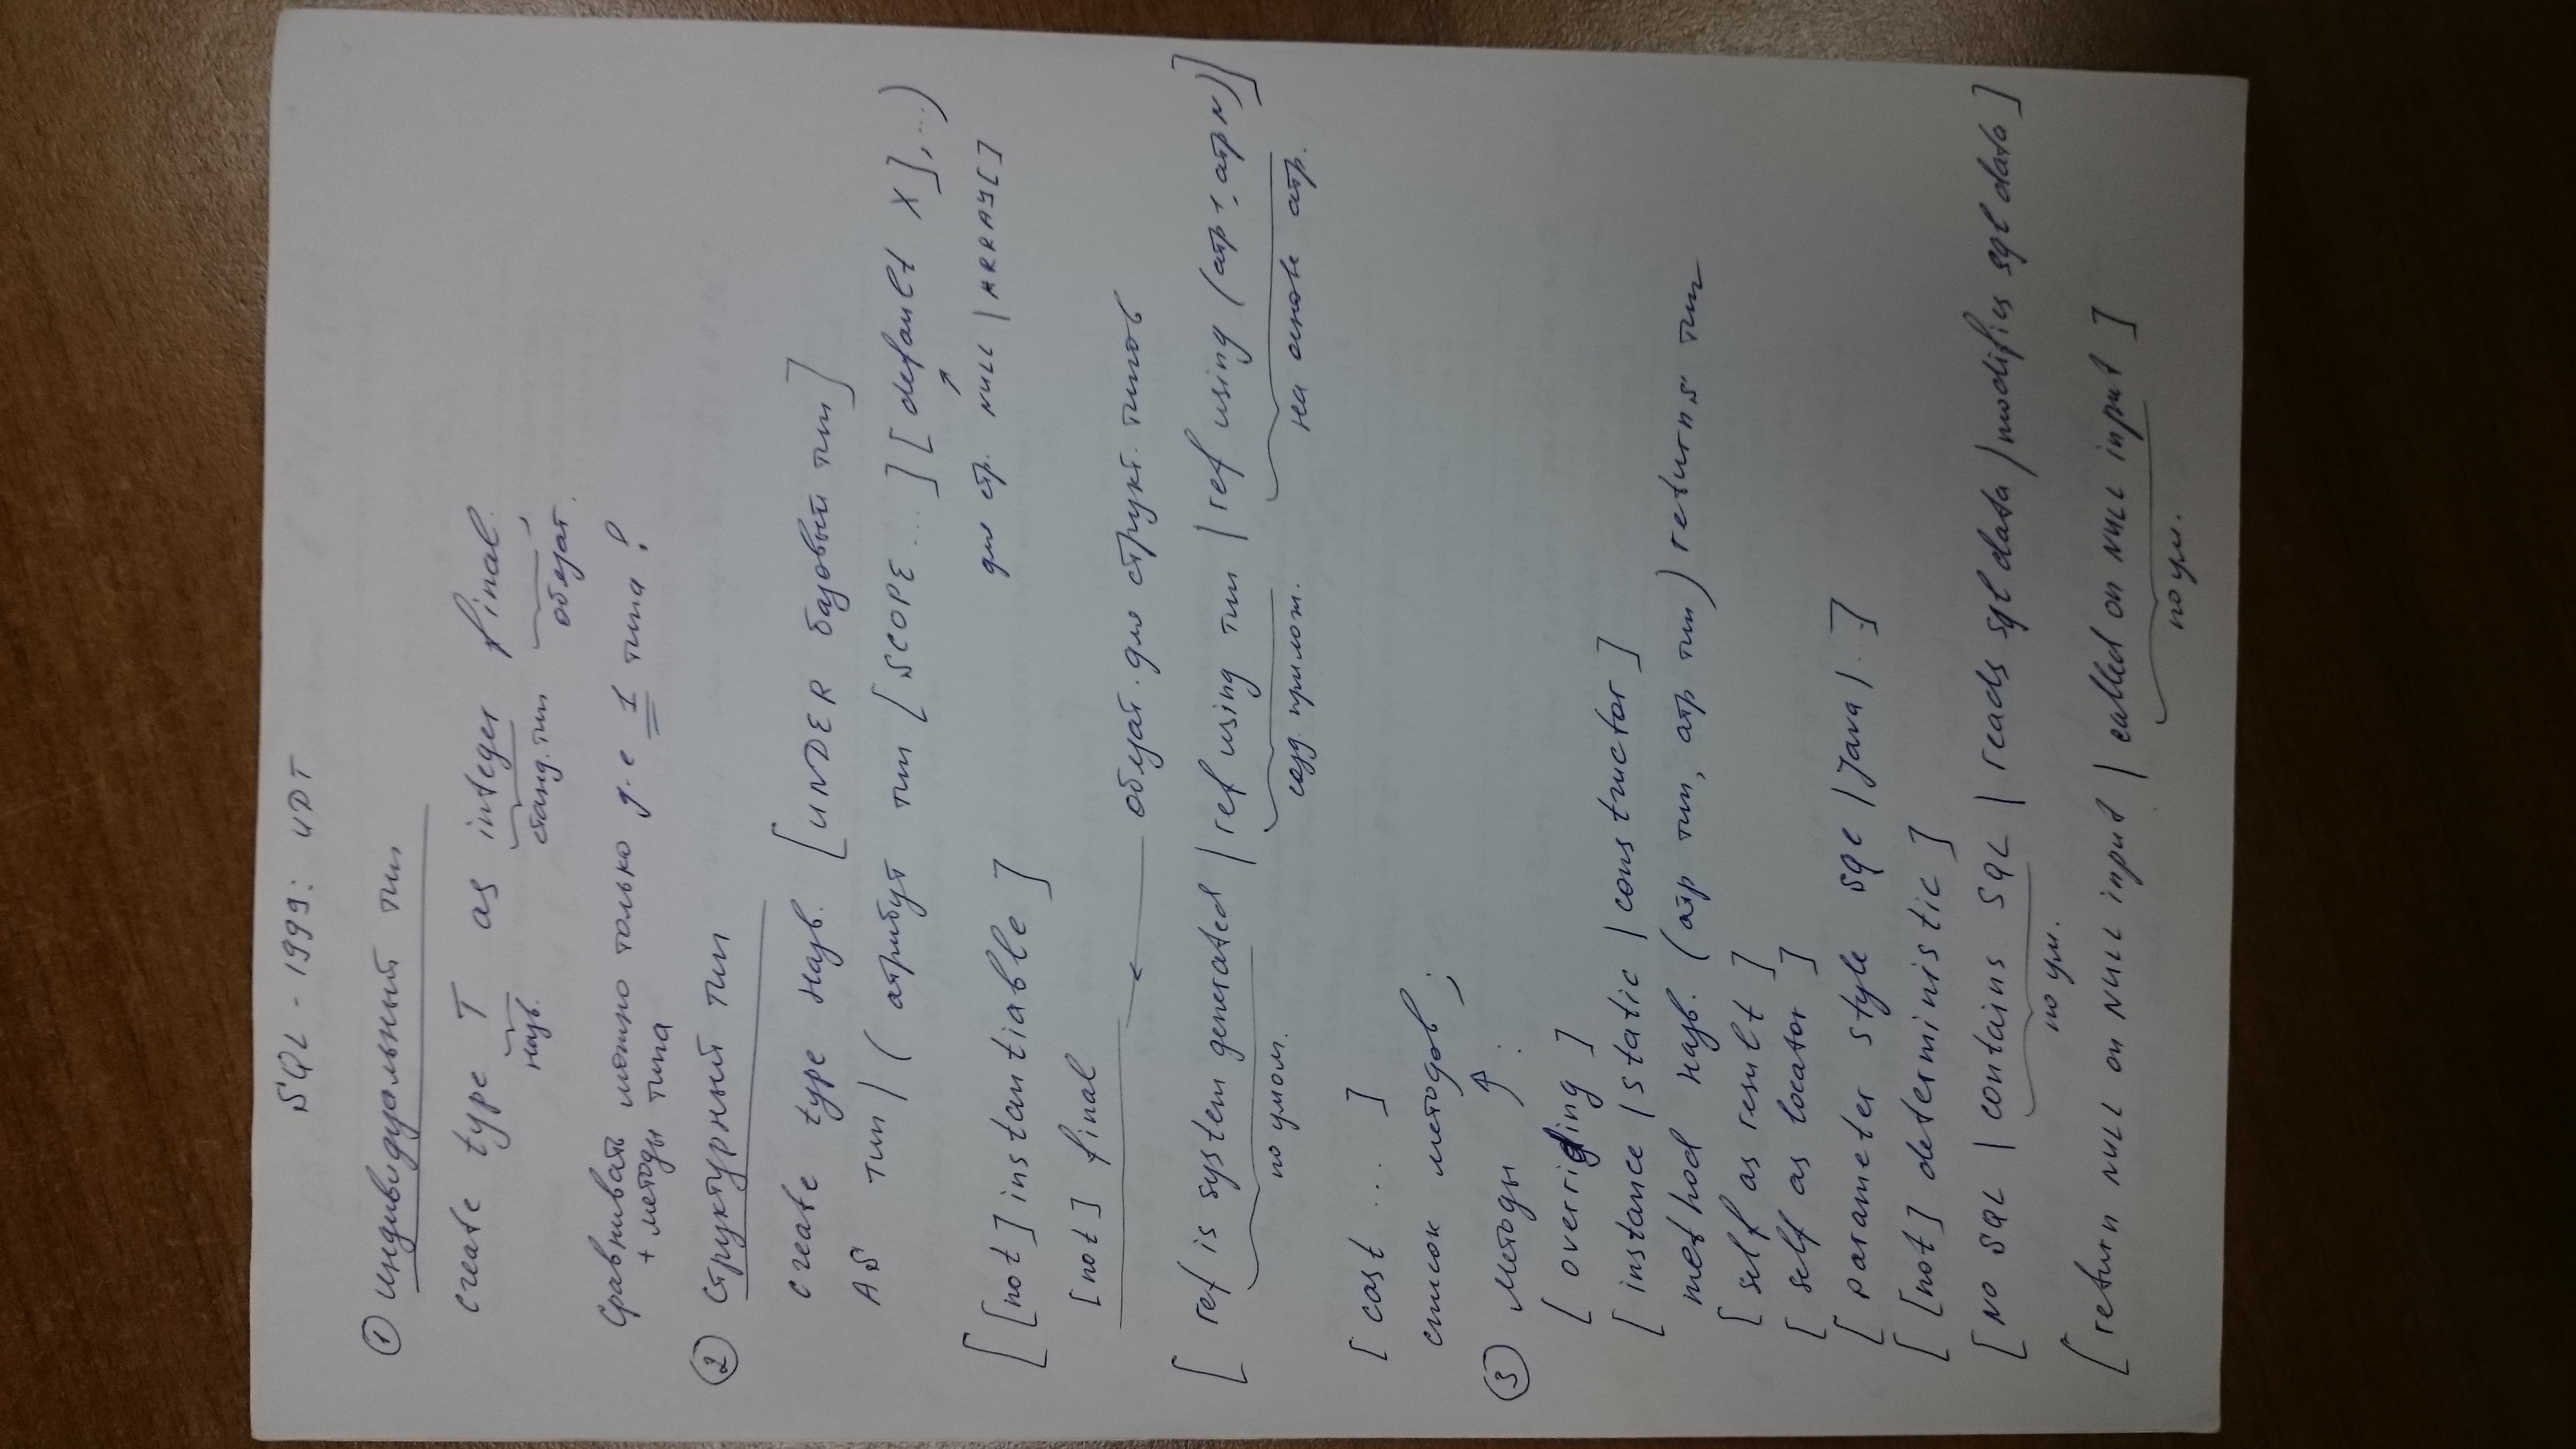 SQL - 1999: UDT
① Индивидуальный тип
create type T as integer final;
назв. станд. тип обязат.
Сравнивать можно только д-е 1 типа!
+ методы типа
② Структурный тип
create type назв. [UNDER базовый тип]
AS тип | ( атрибут тип [ SCOPE ... ] [ default X ], ...)
для стр. NULL | ARRAY[]
[ [not] instantiable ]
[not] final
← обязат. для структ. типов
[ ref is system generated | ref using тип | ref using (атр1, атрN)]
по умолч. созд. прилож. на основе атр.
[ cast ... ]
список методов ;
③ Методы ↑ :
[ overriding ]
[ instance | static | constructor ]
method назв. (атр тип, атр тип) returns тип
[ self as result ]
[ self as locator ]
[ parameter style sql | Java | .. ]
[ [not] deterministic ]
[ NO SQL | contains SQL | reads sql data | modifies sql data ]
по ум.
[ return NULL on NULL input | called on NULL input ]
по ум.